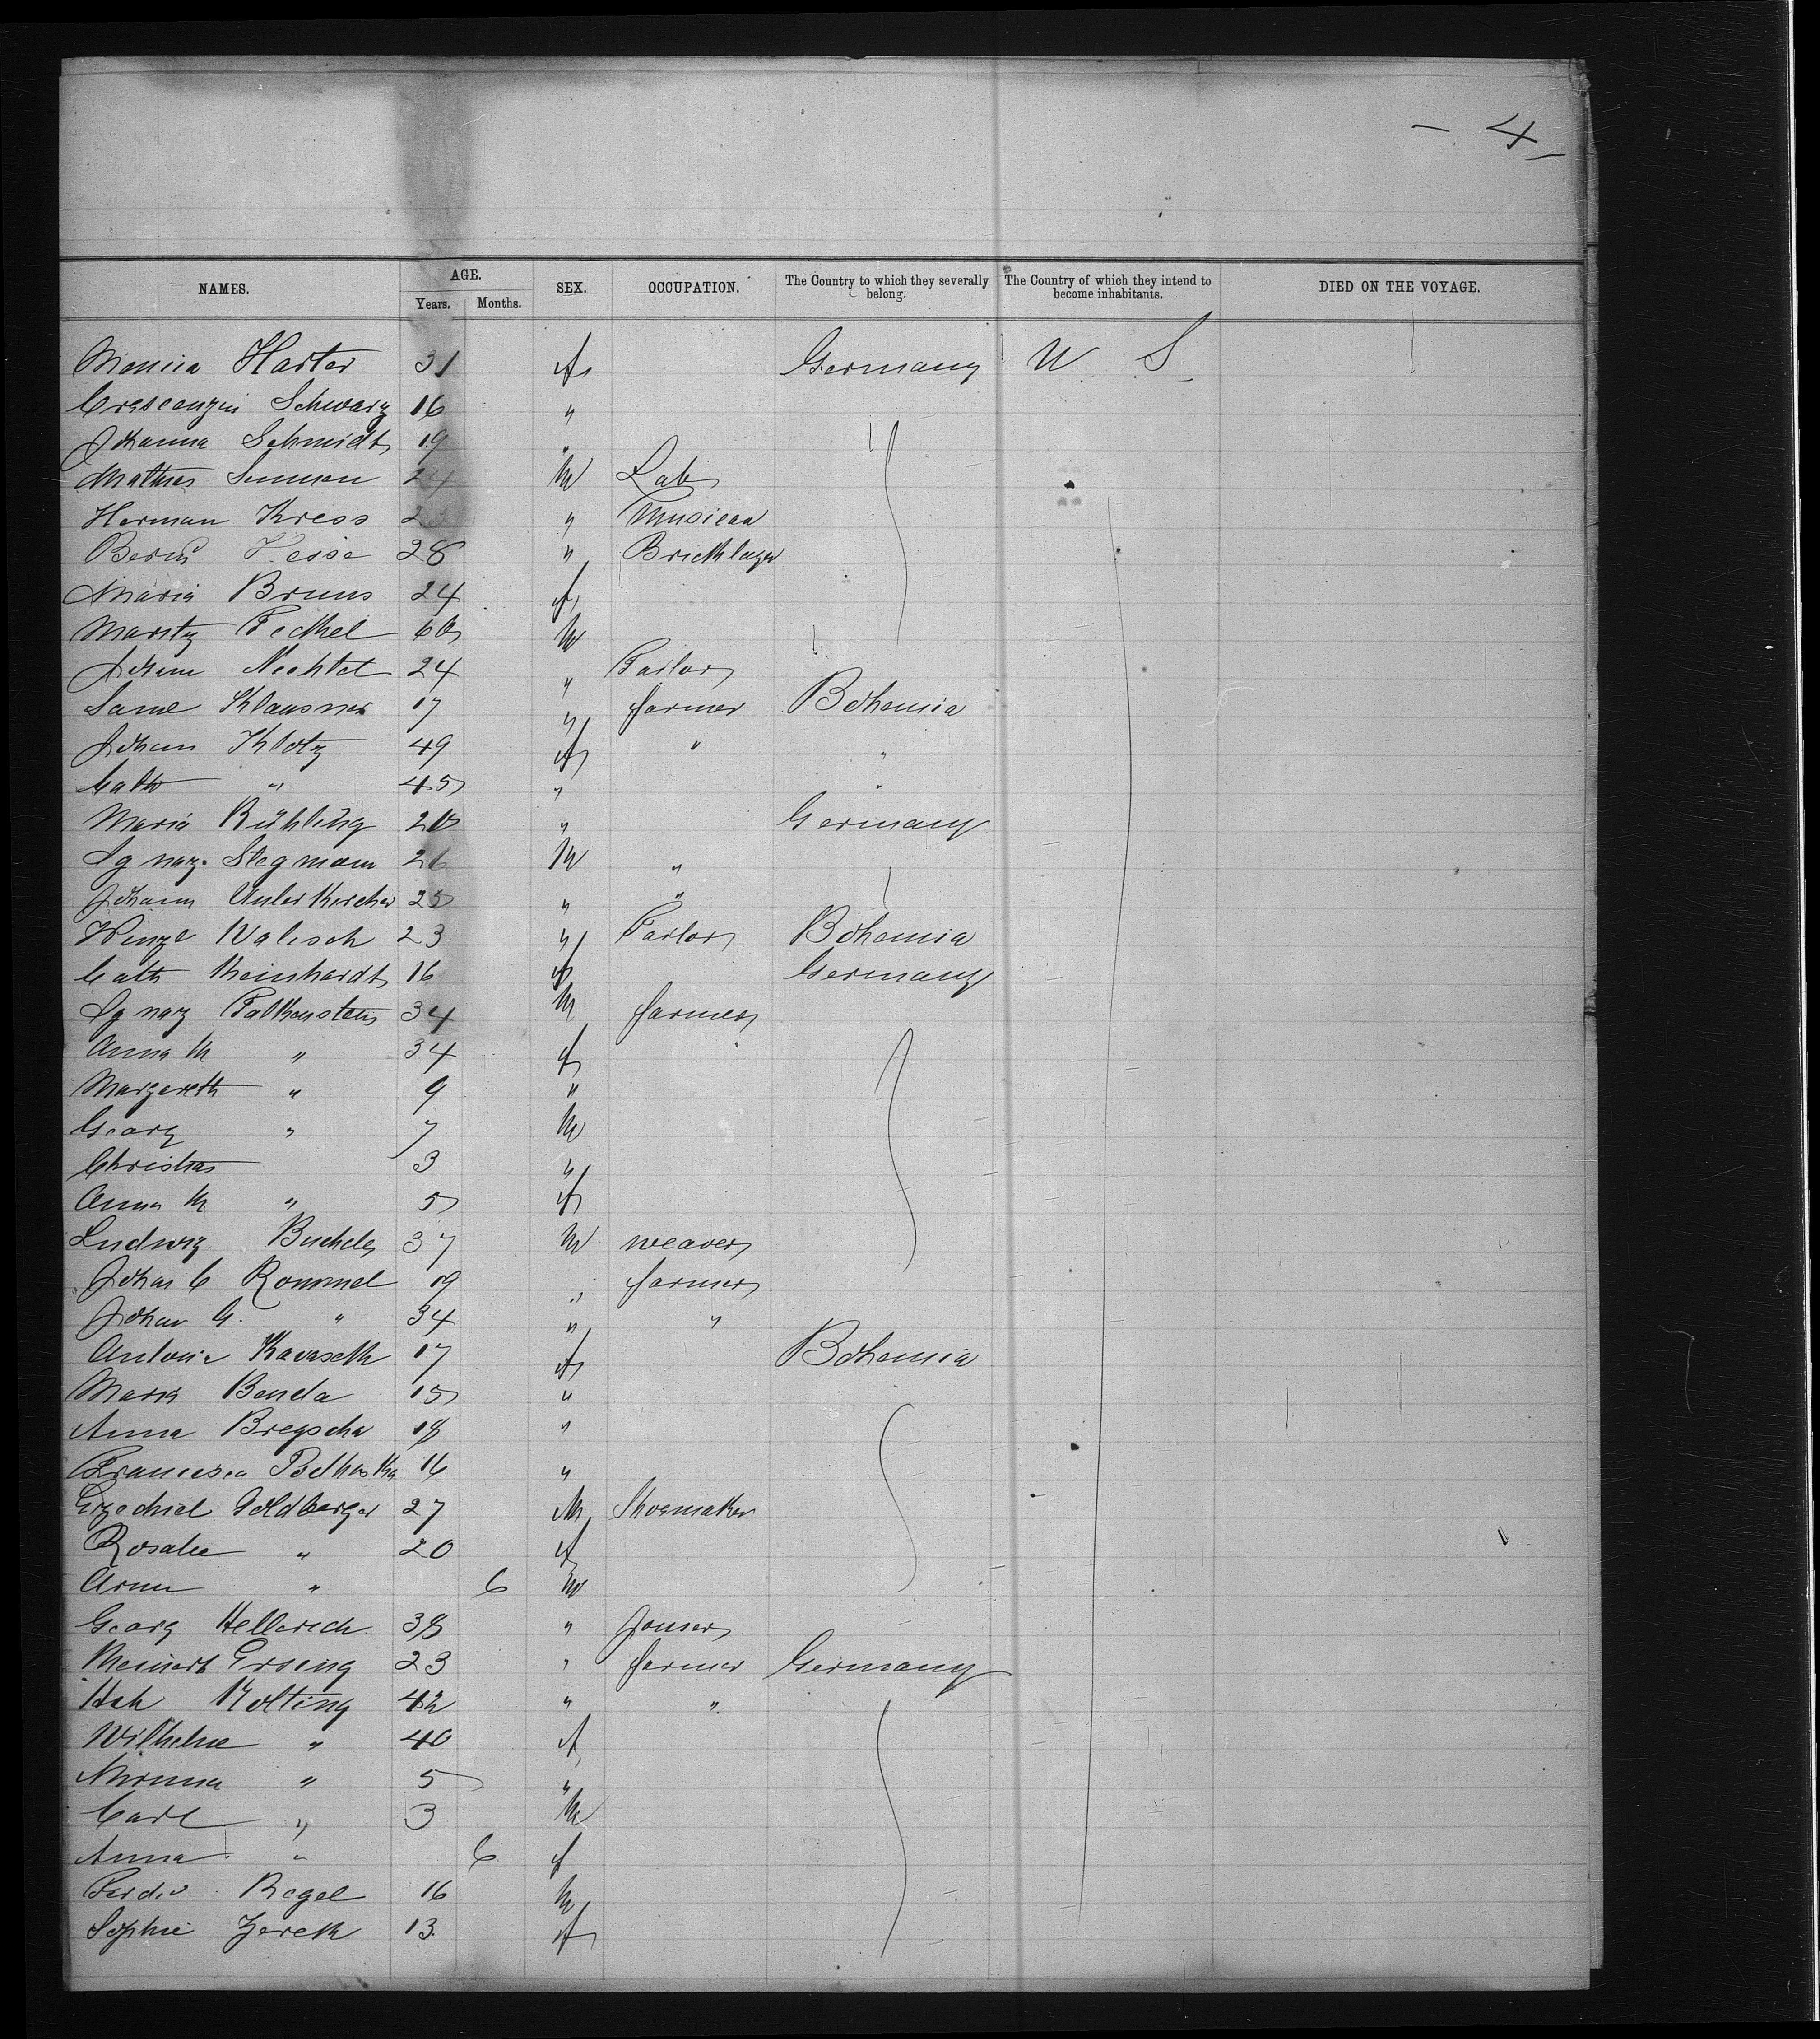 - 4 -
NAMES. AGE. SEX. OCCUPATION. The Country to which they severally belong. The Country of which they intend to become inhabitants. DIED ON THE VOYAGE.
Years. Months.
Monica Harter 31 f Germany U S
Crescenzin Schwarz 16 "
Johanna Schmidt 19 "
Mathias 24 M Lab
Herman Kress 23 " Musican
Bernd Hesse 28 " Bricklayer
Maria Bruns 24 f
Moritz Feckel 60 M
Johann Nechtel 24 " Tailor
Saml Klausner 17 " farmer Bohemia
Johann Klotz 49 f " "
Cath " 45 " "
Maria Rühling 20 " Germany
Ignaz Stegmann 26 M "
Johann Unterkircher 25 " "
Wenzl Walisch 23 " Tailor Bohemia
Cath Reinhardt 16 f Germany
Ignaz Falkenstein 34 M farmer
Anna M " 34 f
Margareth " 9 "
Georg " 7 M
Christian 3 "
Anna M " 5 f
Ludwig Buchele 37 M weaver
Johan C Rommel 19 " farmer
Johan G. " 34 " "
Antonia Kavaseck 17 f Bohemia
Maria Benda 15 "
Anna Bregscha 18 "
Francesca 16 "
Ezechiel Goldberger 27 M Shoemaker
Rosalie " 20 f
Armin " 6 M
Georg Hellerich 38 " Joiner
Meinert Ersing 23 " farmer Germany
Hch Nolting 42 " "
Wilhelme " 40 f
Minna " 5 "
Carl " 3 M
Anna " 6 f
Ferdi Regel 16 M
Sophie Jereck 13 f